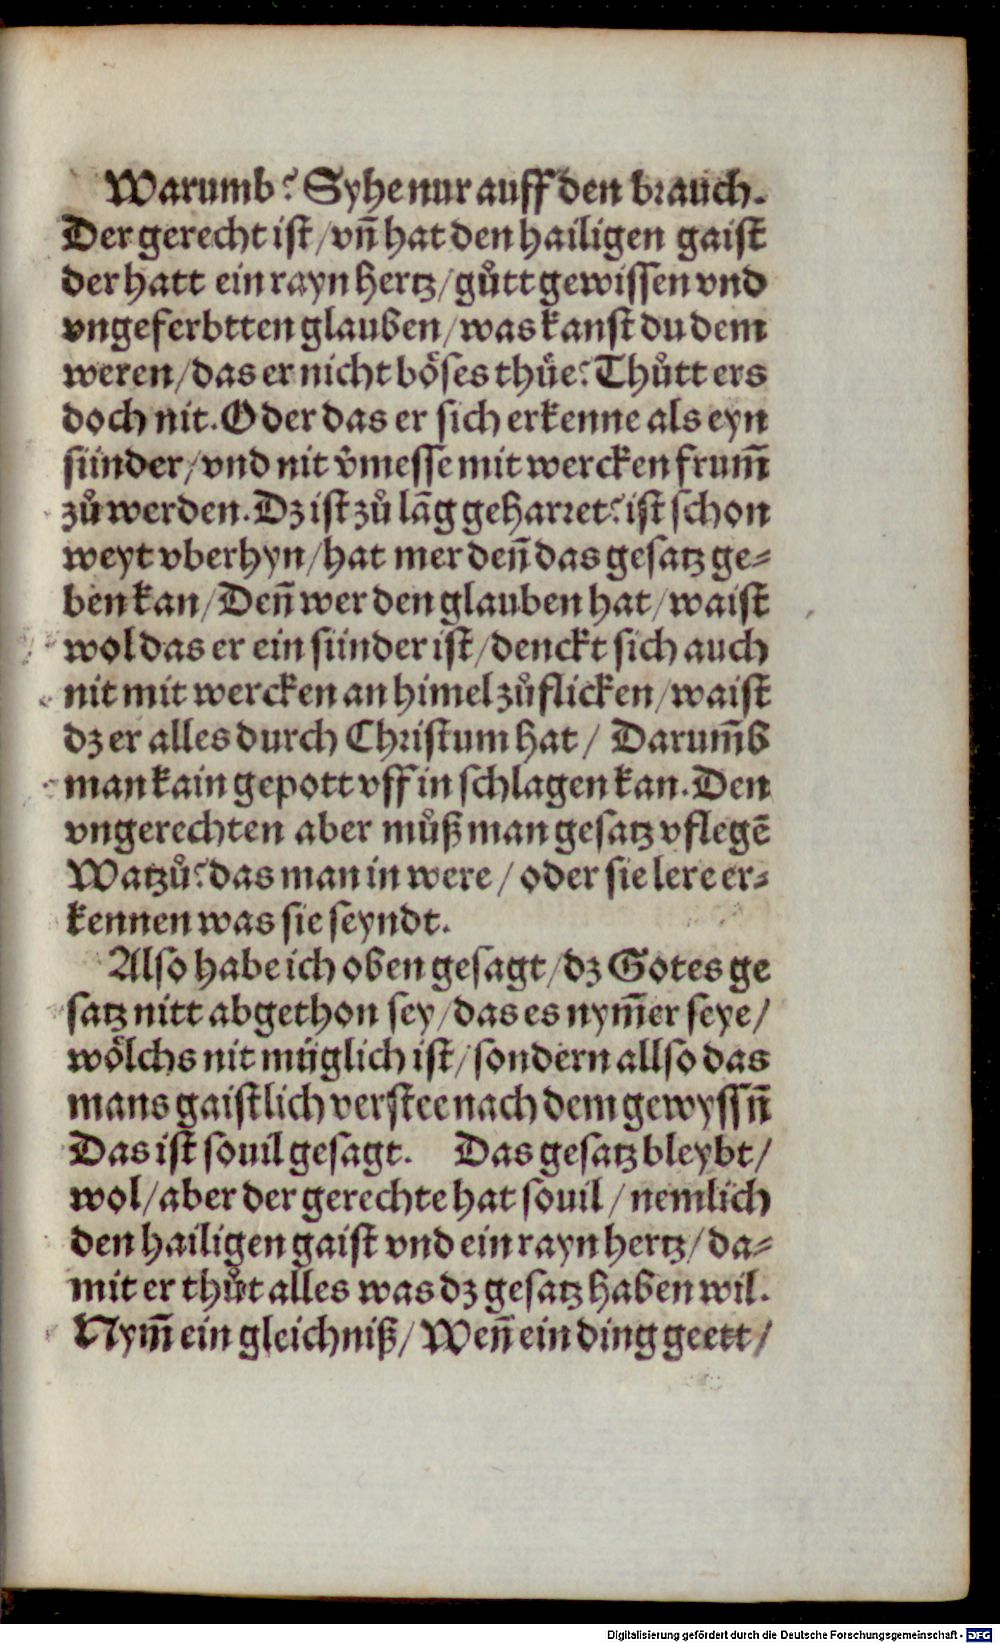 Warumb? Syhe nur auff den brauch.
Der gerecht ist/vñ hat den hailigen gaist
der hatt ein rayn hertz/gůtt gewissen vnd
vngeferbtten glauben/was kanst du dem
weren/das er nicht böses thüe? Thůtt ers
doch nit. Oder das er sich erkenne als eyn
sünder/vnd nit v̂messe mit wercken frum̃
zů werden. Dz ist zů lãg geharret? ist schon
weyt vberhyn/hat mer deñ das gesatz ge⸗
ben kan/Deñ wer den glauben hat/waist
wol das er ein sünder ist/denckt sich auch
nit mit wercken an himel zů flicken/waist
dz er alles durch Christum hat/ Darum̃b
man kain gepott vff in schlagen kan. Den
vngerechten aber můß man gesatz vflegẽ
Watzů? das man in were/ oder sie lere er⸗
kennen was sie seyndt.
Also habe ich oben gesagt/dz Gotes ge
satz nitt abgethon sey/das es nym̃er seye/
wölchs nit müglich ist/sondern allso das
mans gaistlich verstee nach dem gewyssñ
Das ist souil gesagt. Das gesatz bleybt/
wol/aber der gerechte hat souil/nemlich
den hailigen gaist vnd ein rayn hertz/da⸗
mit er thůt alles was dz gesatz haben wil.
Nym̃ ein gleichniß/ Weñ ein ding geett/
Digitalisierung gefördert durch die Deutsche Forschungsgemeinschaft - DFG